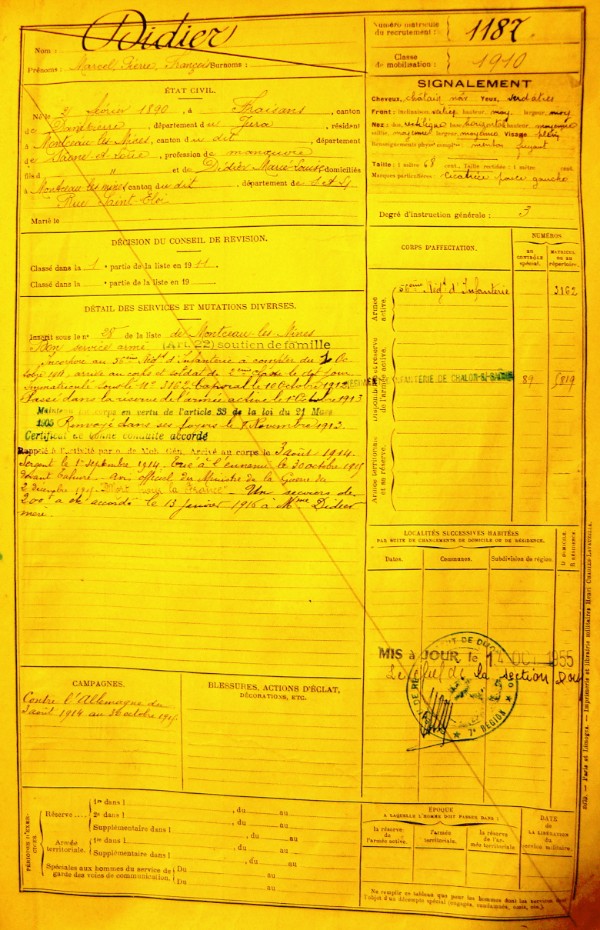 Nom : Didier
Prénoms : Marcel, Pierre, François Surnoms :
Numéro matricule
du recrutement : 1187
Classe
de mobilisation : 1910
ÉTAT CIVIL.
Né le 2 février 1890, à Fraisans, canton
de Dampierre, département du Jura, résidant
à Montceau les Mines, canton du dit, département
de Saône et Loire, profession de manœuvre
fils d et de Didier Marie Louise domiciliés
à Montceau les mines canton du dit, département de S. & L.
Rue Saint Eloi
Marié le
SIGNALEMENT
Cheveux châtain noir Yeux verdâtres
Front : inclinaison hauteur moy. largeur moy.
Nez : dos rectiligne base horizontal hauteur moyenne
saillie moyenne largeur moyenne Visage plein
Renseignements physio menton
Taille : 1 mètre 68 cent. Taille rectifiée : 1 mètre cent.
Marques particulières : Cicatrice gauche
Degré d'instruction générale : 3
DÉCISION DU CONSEIL DE REVISION.
Classé dans la 1 e partie de la liste en 1911
Classé dans la e partie de la liste en 19
CORPS D'AFFECTATION.
NUMÉROS
au contrôle spécial.
matricule ou au répertoire.
Armée active.
56ème Rég d'Infanterie
3162
Disponibilité et réserve de l'armée active.
INFANTERIE DE CHALON-S/-SAONE
89
Armée territoriale et sa réserve.
DÉTAIL DES SERVICES ET MUTATIONS DIVERSES.
Inscrit sous le n° 38 de la liste de Montceau les Mines
Bon service armé (Art. 22) soutien de famille
Incorporé au 56ème Régt d'Infanterie à compter du 1 Oc-
tobre 1911, arrivé au corps et soldat de 2ème classe le dit jour
Immatriculé sous le N° 3162 Caporal le 10 Octobre 1912
Passé dans la réserve de l'armée active le 1er Octobre 1913
Maintenu au corps en vertu de l'article 33 de la loi du 21 Mars
1905 Renvoyé dans ses foyers le 8 Novembre 1913.
Certificat de bonne conduite accordé
Rappelé à l'activité par o. de Mob. Gén. Arrivé au corps le 3 août 1914.
Sergent le 1er septembre 1914. Tué à l'ennemi le 30 octobre 1915
devant Tahure - avis officiel du Ministre de la Guerre du
2 décembre 1915. "Mort pour la France" - Un secours de
200f a été accordé le 13 janvier 1916 à Mme Didier
mère.
LOCALITÉS SUCCESSIVES HABITÉES
PAR SUITE DE CHANGEMENTS DE DOMICILE OU DE RÉSIDENCE.
Dates. Communes. Subdivision de région. D domicile R résidence
MIS à JOUR le 14 OCT 1955
Le Chef de la section
7e REGION
CAMPAGNES.
Contre l'Allemagne du
3 août 1914 au 30 octobre 1915.
BLESSURES, ACTIONS D'ÉCLAT,
DÉCORATIONS, ETC.
PÉRIODES D'EXERCICES
Réserve
1re dans l , du au
2e dans l , du au
Supplémentaire dans l , du au
Armée territoriale.
1re dans l , du au
Supplémentaire dans l , du au
Spéciales aux hommes du service de garde des voies de communication.
Du au
Du au
ÉPOQUE
A LAQUELLE L'HOMME DOIT PASSER DANS :
la réserve de l'armée active.
l'armée territoriale.
la réserve de l'armée territoriale
DATE
DE LA LIBÉRATION
du service militaire.
Ne remplir ce tableau que pour les hommes dont les services sont
l'objet d'un décompte spécial (engagés, condamnés, omis, etc).
Paris et Limoges. — Imprimerie et librairie militaires Henri Charles-Lavauzelle.